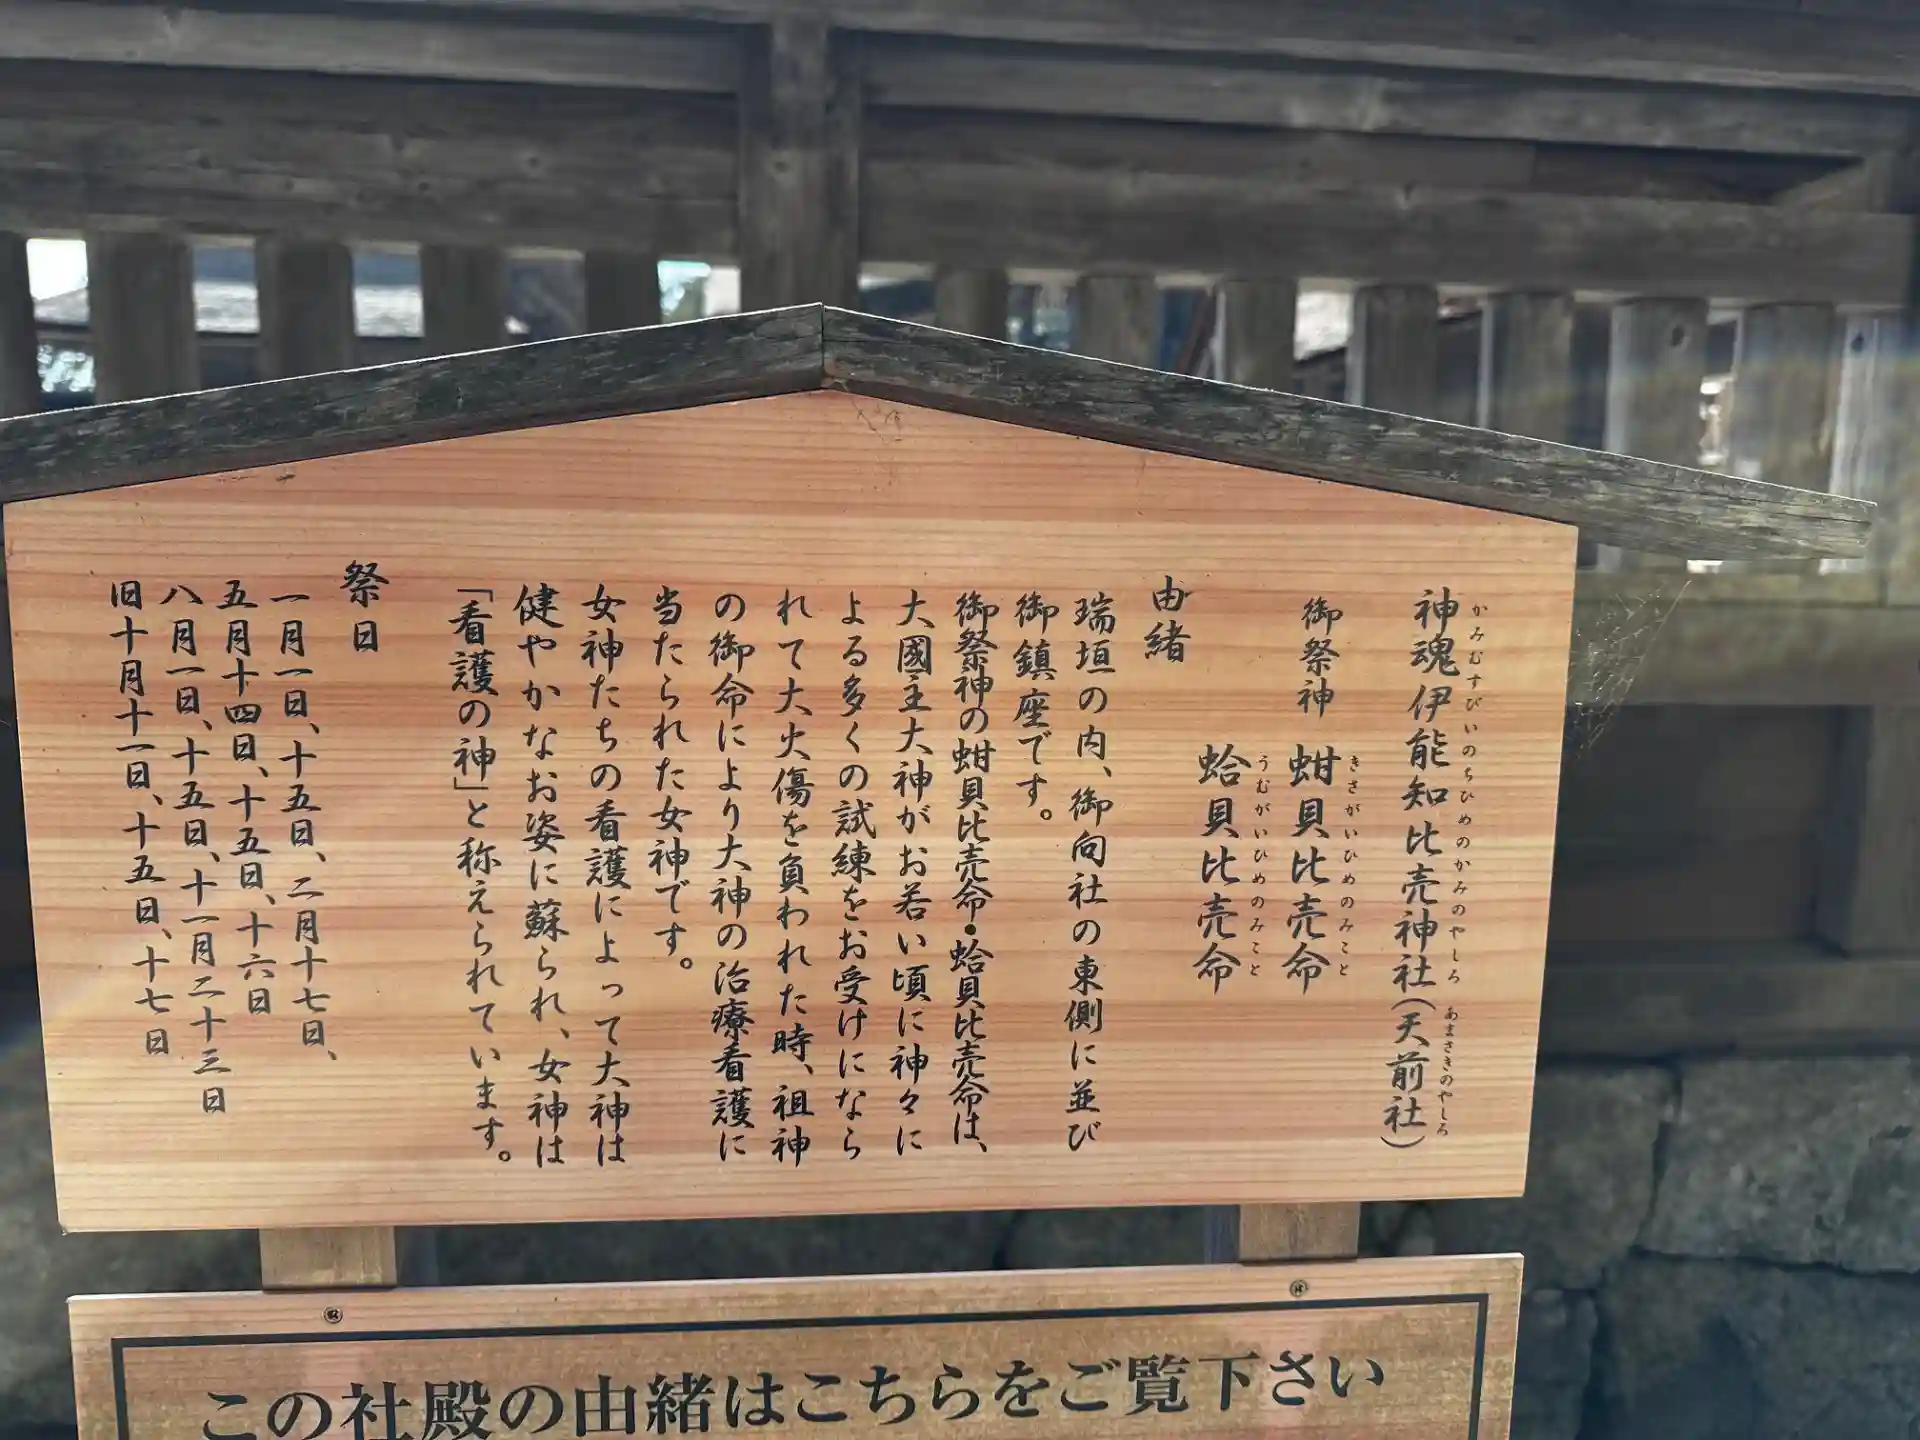 神魂伊能知比売神社(天前社)
かみむすびいのちひめのかみのやしろ あまさきのやしろ
御祭神 蚶貝比売命
きさがいひめのみこと
蛤貝比売命
うむがいひめのみこと
由緒
瑞垣の内、御向社の東側に並び
御鎮座です。
御祭神の蚶貝比売命・蛤貝比売命は、
大國主大神がお若い頃に神々に
よる多くの試練をお受けになら
れて大火傷を負われた時、祖神
の御命により大神の治療看護に
当たられた女神です。
女神たちの看護によって大神は
健やかなお姿に蘇られ、女神は
「看護の神」と称えられています。
祭日
一月一日、十五日、二月十七日、
五月十四日、十五日、十六日
八月一日、十五日、十一月二十三日
旧十月十一日、十五日、十七日
この社殿の由緒はこちらをご覧下さい